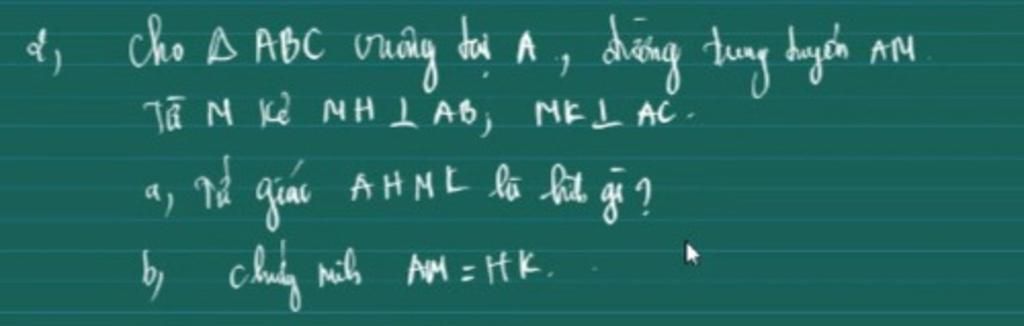 2, Cho Δ ABC vuông tại A, đường trung tuyến AM.
Từ M kẻ MH ⊥ AB; MK ⊥ AC.
a, Tứ giác AHMK là hình gì?
b, chứng minh AM = HK.